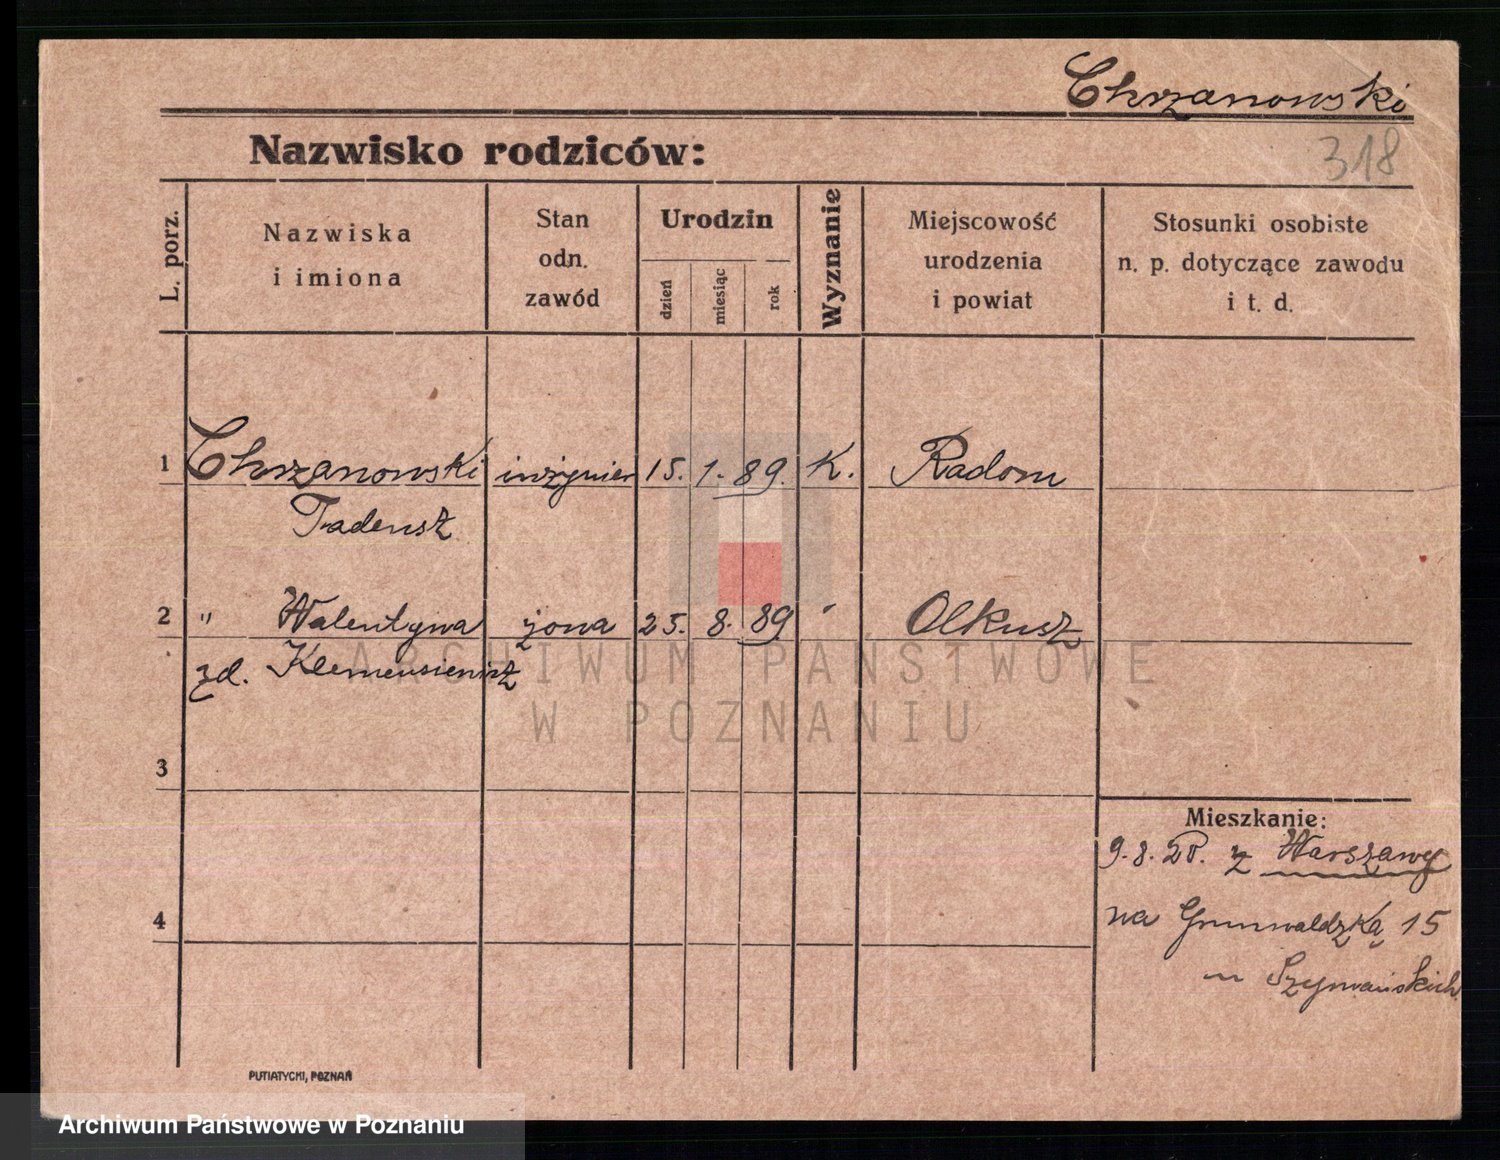 Chrzanowski
318
Nazwisko rodziców:
L. porz.
Nazwiska
i imiona
Stan
odn.
zawód
Urodzin
dzień
miesiąc
rok
Wyznanie
Miejscowość
urodzenia
i powiat
Stosunki osobiste
n. p. dotyczące zawodu
i t. d.
1 Chrzanowski inżynier 15. 1. 89. K. Radom
Tadeusz
2 " Walentyna żona 25. 8. 89 Olkusz
zd. Klemensiewicz
3
Mieszkanie:
9. 8. 20. z Warszawy
4
na Grunwaldzką 15
u Szymańskich
PUTIATYCKI, POZNAŃ
ARCHIWUM PAŃSTWOWE
W POZNANIU
Archiwum Państwowe w Poznaniu